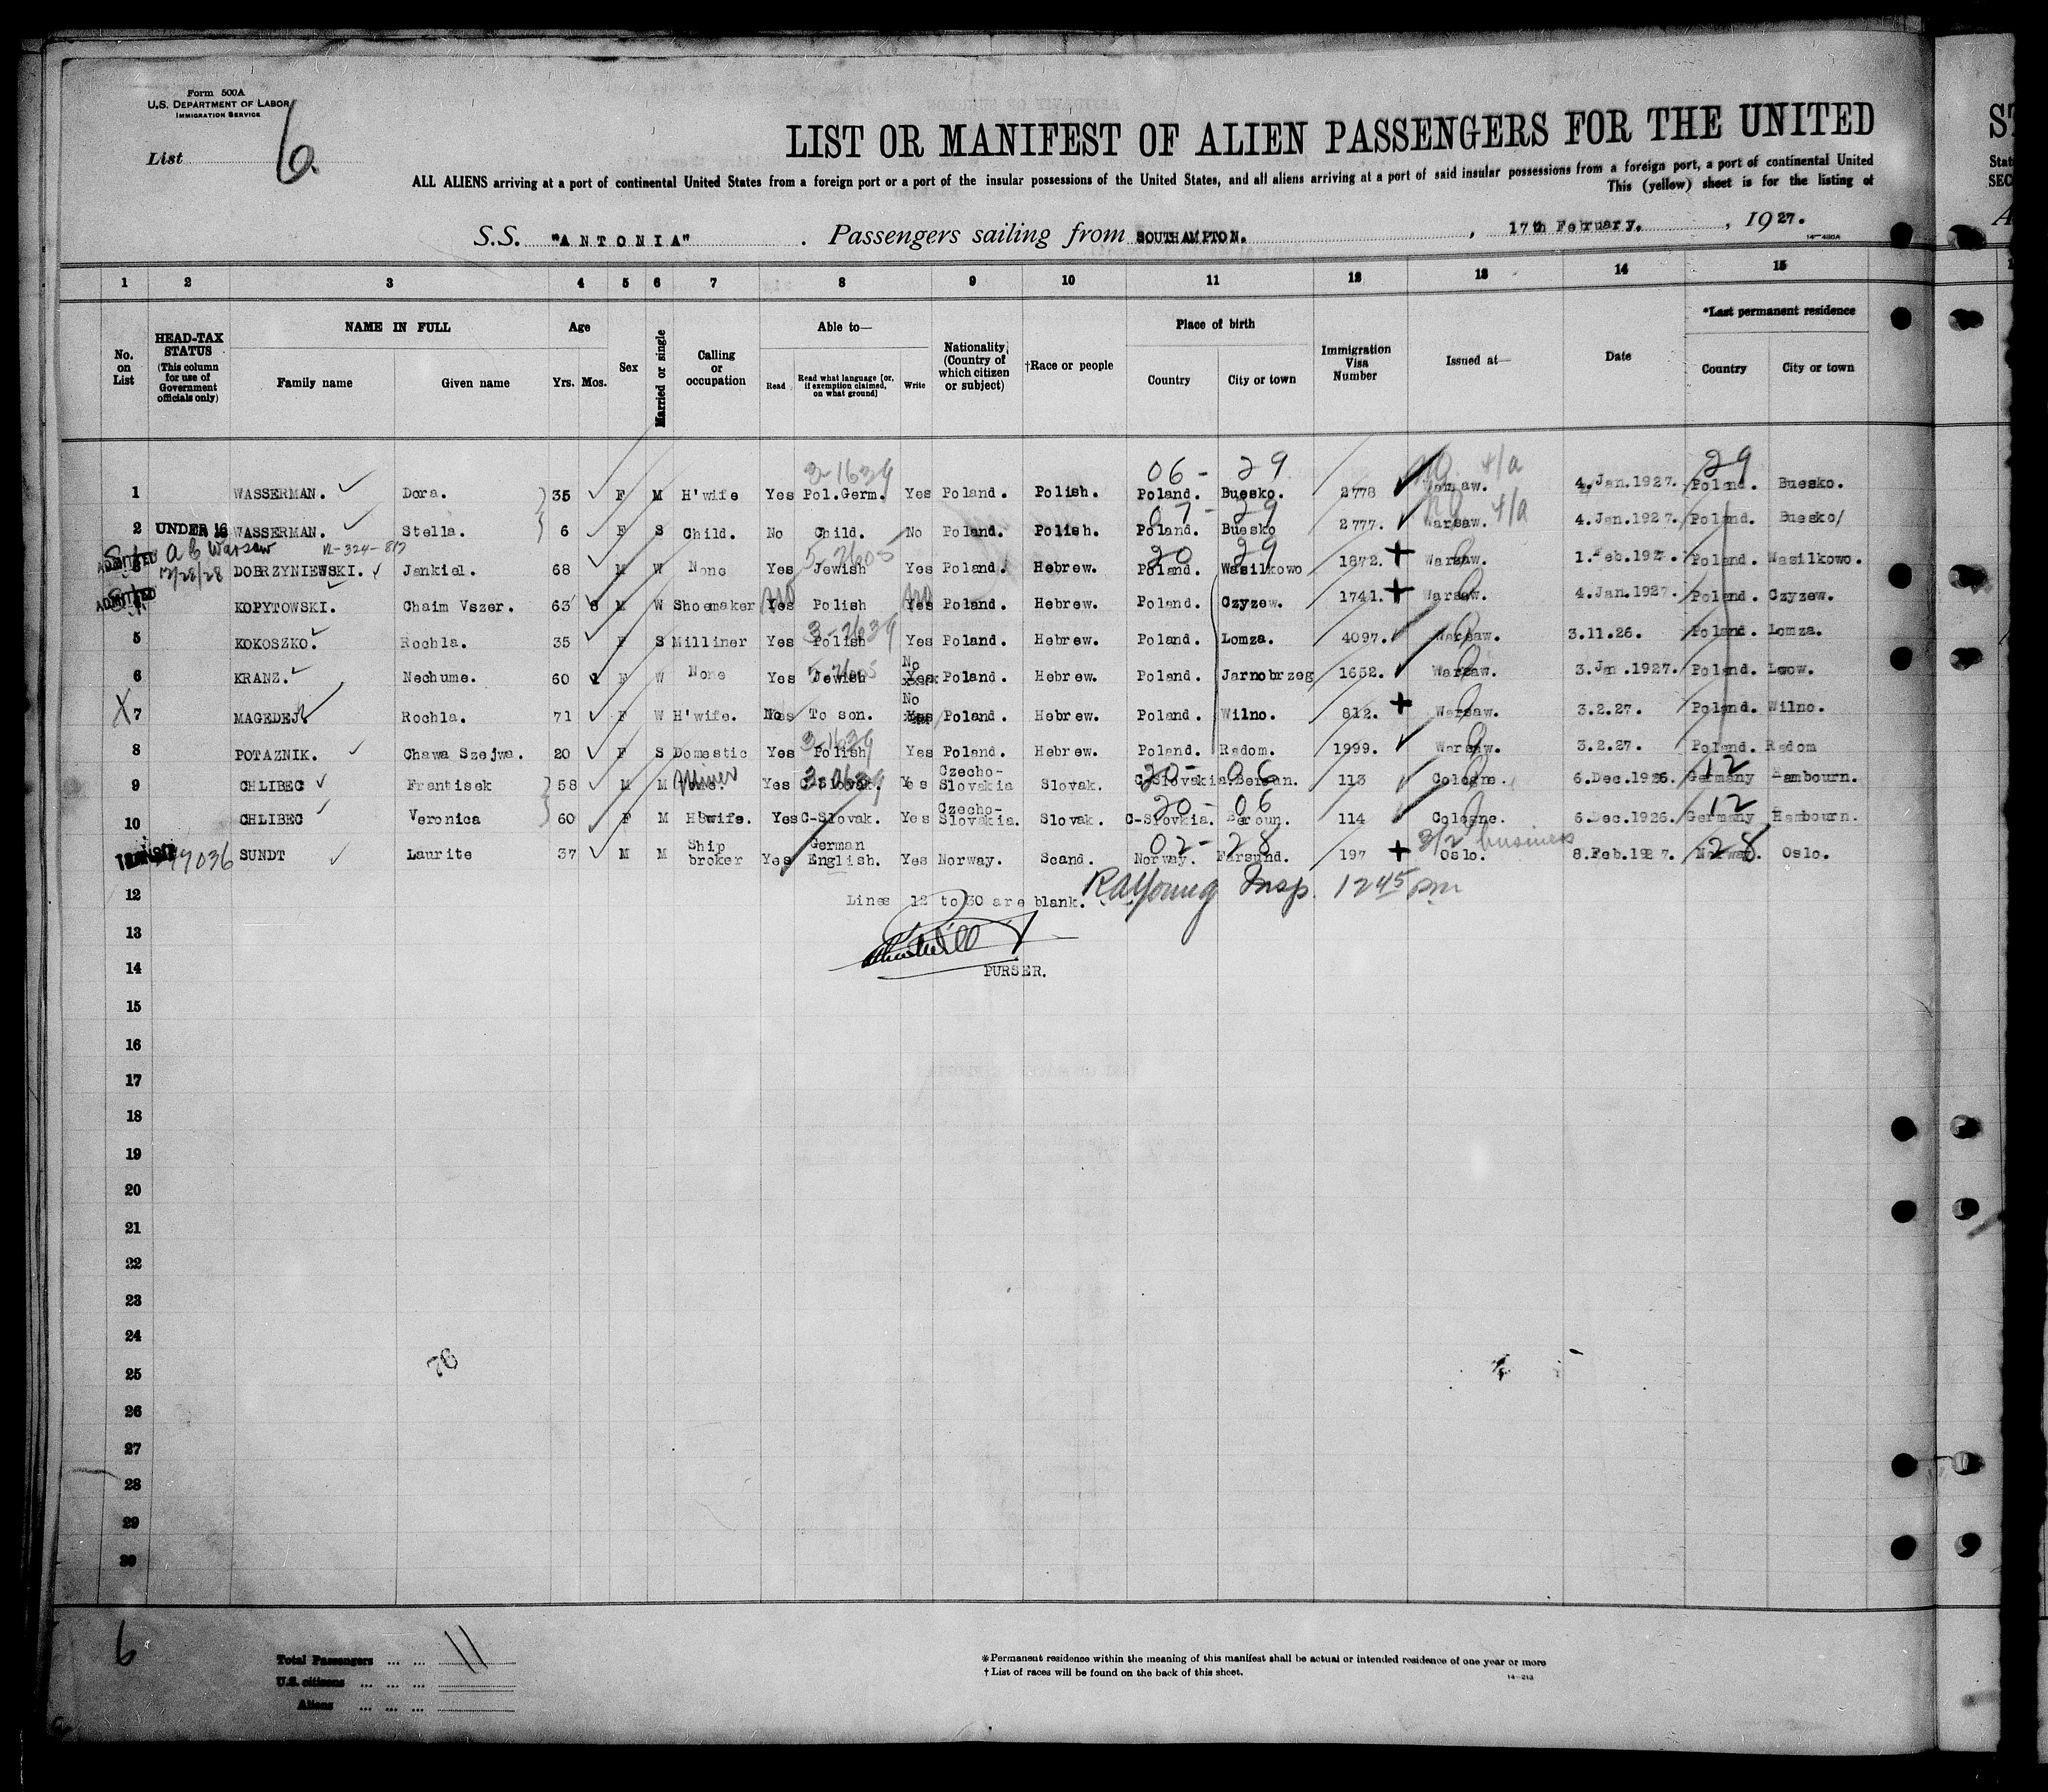 Form 500A
U.S. DEPARTMENT OF LABOR
IMMIGRATION SERVICE
List 6
LIST OR MANIFEST OF ALIEN PASSENGERS FOR THE UNITED
ALL ALIENS arriving at a port of continental United States from a foreign port or a port of the insular possessions of the United States, and all aliens arriving at a port of said insular possessions from a foreign port, a port of continental United
This (yellow) sheet is for the listing of
S.S. "ANTONIA" . Passengers sailing from SOUTHAMPTON. , 17th February. , 1927.
1 2 3 4 5 6 7 8 9 10 11 12 13 14 15
No. on List
HEAD-TAX STATUS (This column for use of Government officials only)
NAME IN FULL
Family name Given name
Age
Yrs. Mos.
Sex
Married or single
Calling or occupation
Able to—
Read Read what language [or, if exemption claimed, on what ground] Write
Nationality (Country of which citizen or subject)
†Race or people
Place of birth
Country City or town
Immigration Visa Number
Issued at—
Date
*Last permanent residence
Country City or town
3-1639 06 - 29 4/a 29
1 WASSERMAN. Dora. 35 F M H'wife Yes Pol.Germ. Yes Poland. Polish. Poland. Buesko. 2778 Warsaw. 4.Jan.1927. Poland. Buesko.
07 - 29 4/a
2 UNDER 16 WASSERMAN. Stella. 6 F S Child. No Child. No Poland. Polish. Poland. Buesko 2777. Warsaw. 4.Jan.1927. Poland. Buesko/
ADMITTED Warsaw 12/28/28 5-2605 20 29
3 DOBRZYNIEWSKI. Jankiel. 68 M W None Yes Jewish Yes Poland. Hebrew. Poland. Wasilkowo 1872. Warsaw. 1.Feb.1927. Poland. Wasilkowo.
ADMITTED no no
4 KOPYTOWSKI. Chaim Vszer. 63 M W Shoemaker Yes Polish Yes Poland. Hebrew. Poland. Czyzew. 1741. Warsaw. 4.Jan.1927. Poland. Czyzew.
3-2639
5 KOKOSZKO. Rochla. 35 F S Milliner Yes Polish Yes Poland. Hebrew. Poland. Lomza. 4097. Warsaw. 3.11.26. Poland. Lomza.
5-2605 No
6 KRANZ. Nechume. 60 F W None Yes Jewish Yes Poland. Hebrew. Poland. Jarnobrzeg 1652. Warsaw. 3.Jan.1927. Poland. Lwow.
No
X 7 MAGEDEJ. Rochla. 71 F W H'wife. To son. Yes Poland. Hebrew. Poland. Wilno. 812. Warsaw. 3.2.27. Poland. Wilno.
3-1639
8 POTAZNIK. Chawa Szejwa. 20 F S Domestic Yes Polish Yes Poland. Hebrew. Poland. Radom. 1999. Warsaw. 3.2.27. Poland. Radom
Miner 20 - 06 12
9 CHLIBEC Frantisek 58 M M Yes C-Slovak. Yes Czecho-Slovakia Slovak. C-Slovakia. 113 Cologne. 6.Dec.1926. Germany Hambourn.
20 - 06 12
10 CHLIBEC Veronica 60 F M H'wife. Yes C-Slovak. Yes Czecho-Slovakia. Slovak. C-Slovkia. Beroun. 114 Cologne. 6.Dec.1926. Germany Hambourn.
02 - 28 3/2 business 28
SUNDT Laurite 37 M M Ship broker Yes German English. Yes Norway. Scand. Norway. Farsund. 197 Oslo. 8.Feb.1927. Norway. Oslo.
12 Lines 12 to 30 are blank. RA Young Insp. 1245 pm
13
14 PURSER.
15
16
17
18
19
20
21
22
23
24
25
26
27
28
29
30
6
Total Passengers 11
U.S. citizens
Aliens
*Permanent residence within the meaning of this manifest shall be actual or intended residence of one year or more
†List of races will be found on the back of this sheet.
14-213